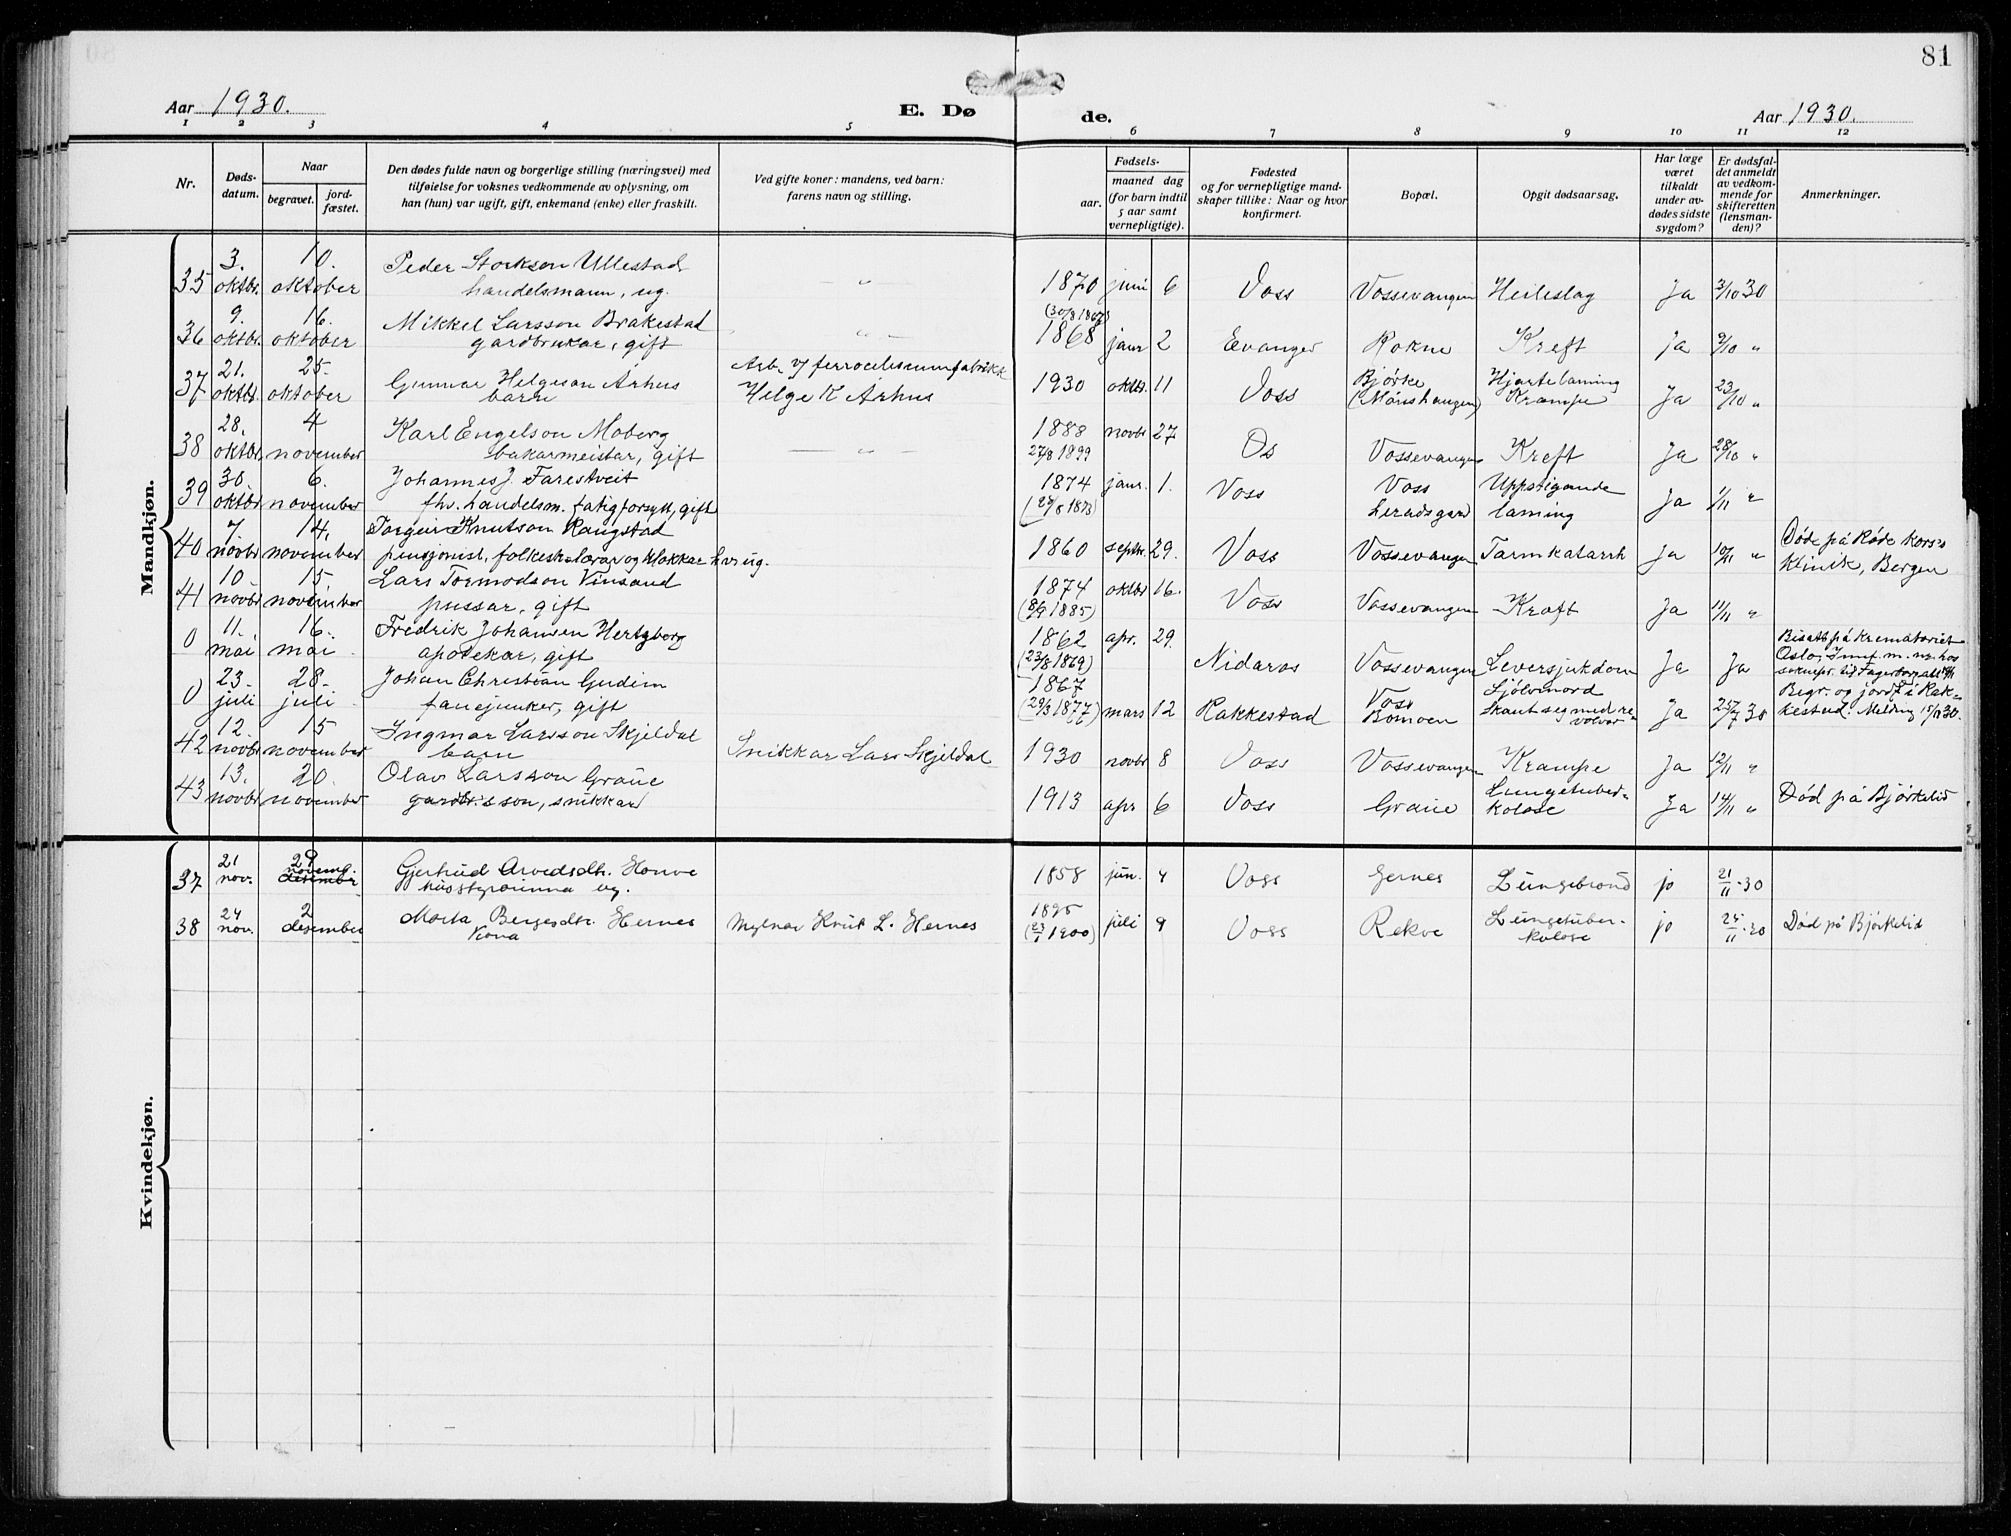 81
Aar 1930.
E. Dø
de.
Aar 1930.
1 2 3 4 5 6 7 8 9 10 11 12
Nr.
Døds-
datum.
Naar
begravet.
jord-
fæstet.
Den dødes fulde navn og borgerlige stilling (næringsvei) med
tilføielse for voksnes vedkommende av oplysning, om
han (hun) var ugift, gift, enkemand (enke) eller fraskilt.
Ved gifte koner: mandens, ved barn:
farens navn og stilling.
Fødsels-
aar.
maaned dag
(for barn indtil
5 aar samt
vernepligtige).
Fødested
og for vernepligtige mand-
skaper tillike: Naar og hvor
konfirmert.
Bopæl.
Opgit dødsaarsag.
Har læge
været
tilkaldt
under av-
dødes sidste
sygdom?
Er dødsfal-
det anmeldt
av vedkom-
mende for
skifteretten
(lensman-
den)?
Anmerkninger.
Mandkjøn.
3. 10. Peder Storkson Ullestad
35 oktbr. oktober handelsmann, ug. — " — 1870 juni 6 Voss Vossevangen Heileslag Ja 3/10 30
9. 16. Mikkel Larsson Brakestad (30/8 1867)
36 oktbr. oktober gardbrukar, gift — " — 1868 janr 2 Evanger Rokne Kreft Ja 9/10 "
21. 25. Arb. v/ ferrocilisiumfabrikk Bjørke Hjartelaming
37 oktbr. oktober Gunnar Helgeson Århus Helge K Århus 1930 oktbr. 11 Voss (Mønshaugen) Krampe Ja 23/10 "
barn
28. 4 Karl Engelson Moberg 1888 novbr 27
38 oktbr. november bakarmeistar, gift — " — 27/8 1899 Os Vossevangen Kreft Ja 28/10 "
30. 6. Johannes J. Farestveit 1874 janr. 1. Voss Voss Uppstigande
39 oktbr november fhv. handelsm. fatigforsytt, gift Leradsgard laming Ja 1/11 "
7 14. Torgeir Knutson Rangstad Døde på Røde Kors's
40 novbr november pensjonist, folkeskolelærar og klokkar h.v. ug. 1860 septr. 29. Voss Vossevangen Tarmkatarrh Ja 10/11 " klinik, Bergen
10 15. Lars Tormodson Vinsand 1874 oktbr 16.
41 novbr november pussar, gift (8/9 1885) Voss Vossevangen Kreft Ja 11/11 "
11. 16. Fredrik Johansen Hertzberg 1862 apr. 29. Bisatt på Krematoriet
0 mai mai apotekar, gift (23/8 1869) Nidaros Vossevangen Leversjukdom Ja Ja Oslo,
23. 28. Johan Christian Gudim 1867 Voss Sjølvmord Begr. og jordf. i Rak-
0 juli juli fanejunker, gift (29/3 1877) mars 12 Rakkestad Bømoen Skaut seg med re- Ja 25/7 30 kestad. Melding 15/11 30.
volver
12. 15 Ingmar Larsson Skjeldal
42 novbr november barn Snikkar Lars Skjeldal 1930 novbr 8 Voss Vossevangen Krampe Ja 12/11 "
13. 20. Olav Larsson Graue Lungetuber-
43 novbr november gardbr.s son, snikkar 1913 apr 6 Voss Graue kolose Ja 14/11 " Død på Bjørkelid
Kvindekjøn.
21 29 novemb. Gjertrud Arvedsdtr. Honve
37 nov. desember husstyrarinna ug. 1858 jun. 4 Voss Gernes Lungebrand jo 21/11 - 30
24 2 Marta Bergesdtr. Hernes 1895 Lungetuber-
38 nov. desember Kona Mylnar Knut L. Hernes (23/1 1900) juli 9 Voss Rekve kolose jo 25/11 - 30 Død på Bjørkelid